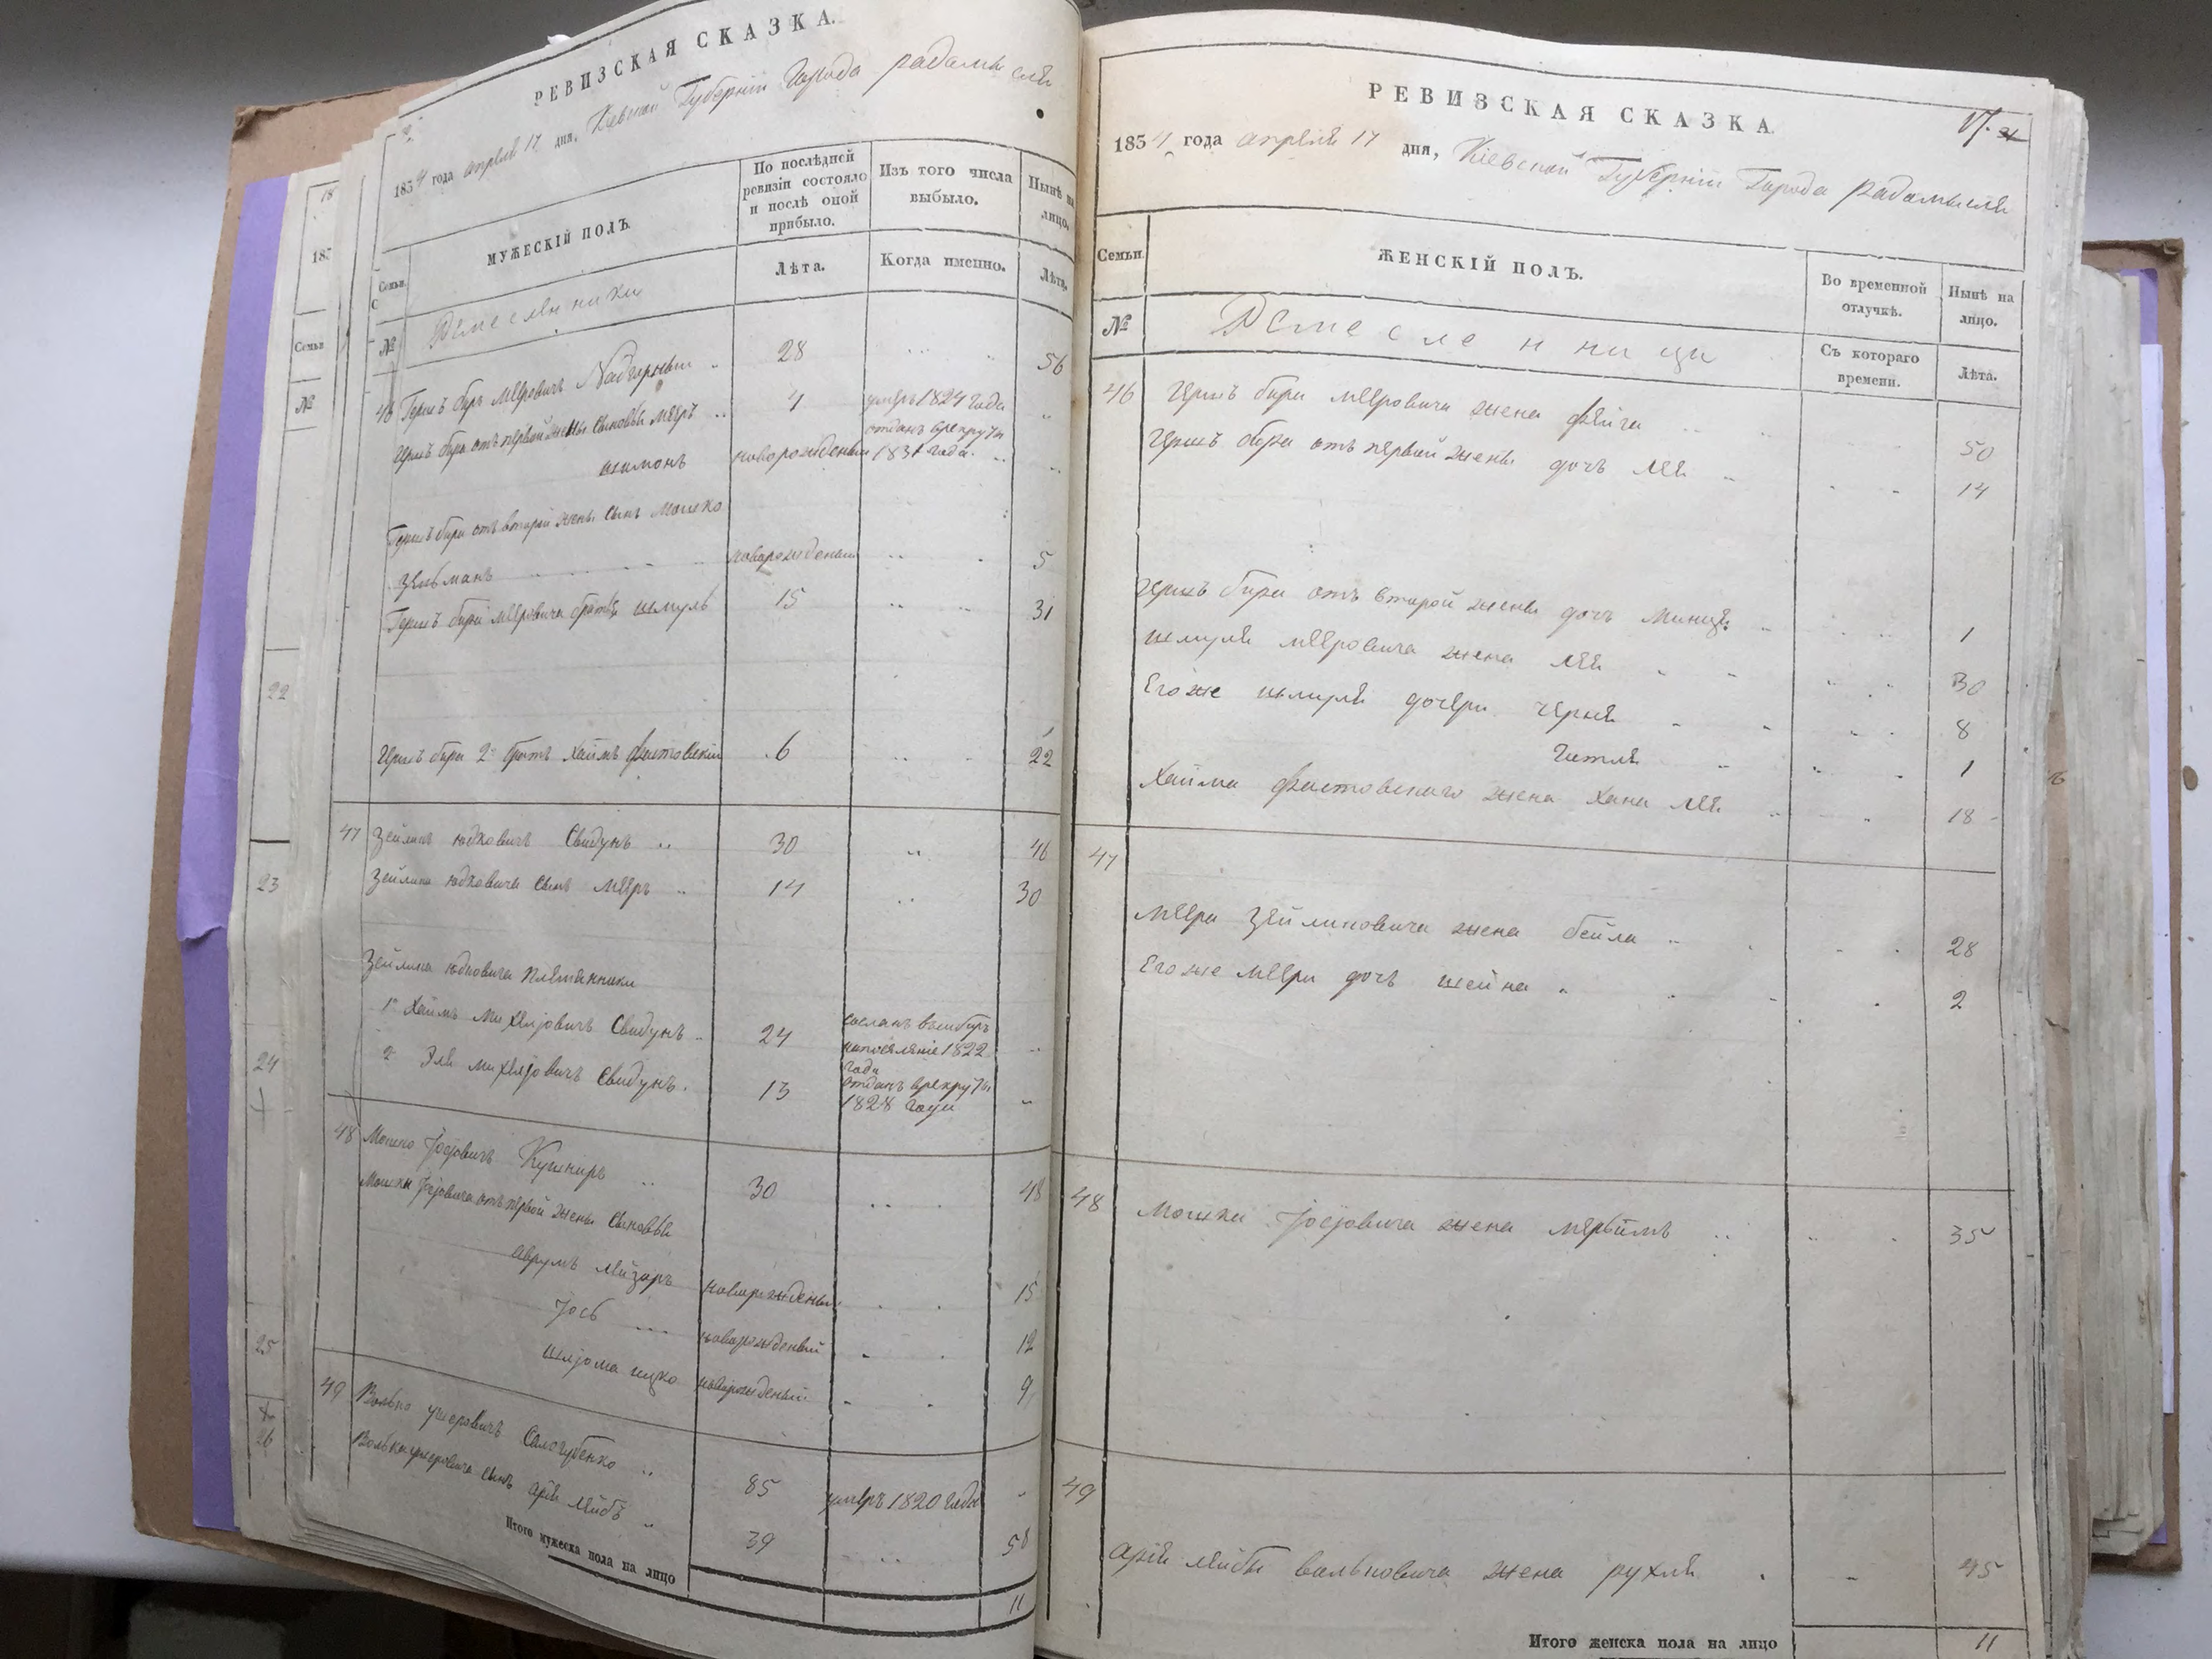 РЕВИЗСКАЯ СКАЗКА.
1834 года апреля 17 дня, Киевской Губернии Города радамысля
Семьи
МУЖЕСКІЙ ПОЛЪ
По послѣдней ревизіи состояло и послѣ оной прибыло.
Изъ того числа выбыло.
Нынѣ на лицо.
№
Лѣта.
Когда именно.
Лѣта.
Ремесленники
46 Герш бер Меерович 28 56
Герш бера от первой жены сыновья Меер 4 умер 1824 года
шимон новорожденый отдан в рекруты 1831 года
Герш бера от второй жены сын Мошко
Зельман новорожденый 5
Герш бера Мееровича брат шмуль 15 31
Герш бера 2й брат Хаим фастовский 6 22
47 Зейлик юдкович Свидун 30 46
Зейлика юдковича сын Меер 14 30
Зейлика юдковича племянники
1й Хаим Михелювич Свидун 24 сослан в сибирь на поселение 1822 года
2й Эля Михелювич Свидун 13 отдан в рекруты 1828 года
48 Мошко Јосјович Кушнир 30 48
Мошки Јосјовича от первой жены сыновья
Аврум лейзор новорожденый 15
Јось новорожденый 12
шлјома ицко новорожденый 9
49 Волько ушерович 85 умер 1820 года
Волька ушеровича сын арья лейб 39 58
Итого мужеска пола на лицо 11
РЕВИЗСКАЯ СКАЗКА.
1834 года апреля 17 дня, Киевской Губернии Города радамысля
Семьи
ЖЕНСКІЙ ПОЛЪ.
Во временной отлучкѣ.
Нынѣ на лицо.
№
Съ котораго времени.
Лѣта.
Ремесленници
46 Герш бера мееровича жена фейга 50
Герш бера от первой жены доч лея 14
Герш бера от второй жены доч 1
шмуля мееровича жена лея 30
Его же шмуля дочери черня 8
Гитля 1
Хаима фастовскаго жена Хана лея 18
47
Меера Зейликовича жена бейла 28
Его же меера доч шейна 2
48 Мошки Јосјовича жена мерьим 35
49
арья лейбы вольковича жена рухля 45
Итого женска пола на лицо 11
22
23
24
25
26